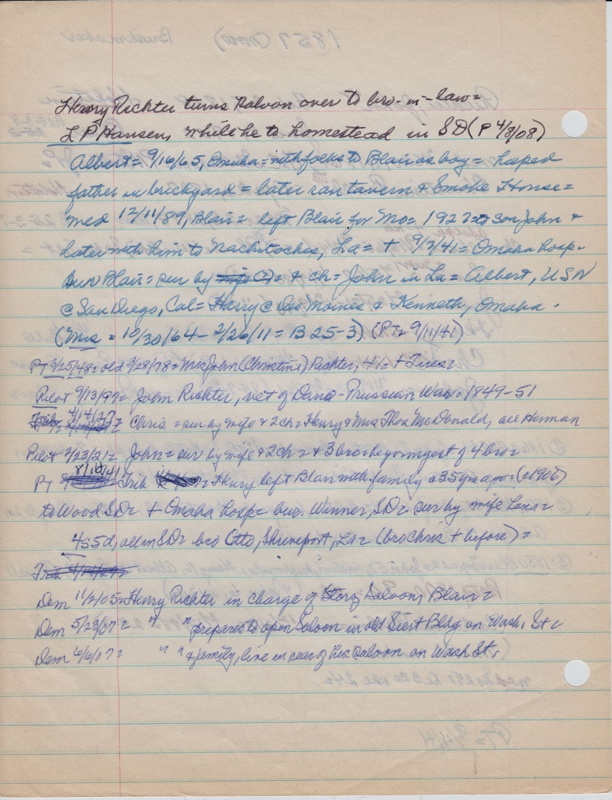 Henry Richter turns saloon over to bro-in-law =
L P Hansen, while he to homestead in SD (P 4/8/08)
Albert = 9/16/65, Omaha = with folks to Blair as boy = helped
father in brickyard = later ran tavern & Smoke House =
med 12/11/89, Blair = left Blair for Mo = 1922 to son John &
later with him to Nachitoches, La = + 9/7/41 = Omaha hosp =
bur Blair = sur by & ch = John in La = Albert, USN
@ San Diego, Cal = Harry @ Des Moines & Kenneth, Omaha.
(Mrs = 10/30/64 - 2/26/11 = B 25-3) (PT = 9/11/41)
PT 9/25/48 = old 9/28/78 = Mrs John (Christini) Richter, 41 = +
Pilot 9/13/97 = John Richter, vet of Dano-Prussian War = 1849-51
Chris = sur by wife & 2 ch = Henry & Mrs Thos McDonald, all Herman
Pilot 2/23/21 = John = sur by wife & 2 ch = & 3 bro = he youngest of 4 bro =
PT 8/ /41 = Henry left Blair with family c 35 yrs ago = (c1906)
to Wood SD = + Omaha hosp = bur. Winner, SD = sur by wife Lena =
4s 5d, all in SD = bro Otto, Shreveport, La = (bro Chris + before) =
Dem 11/2/05 = Henry Richter in charge of Storz Saloon, Blair =
Dem 5/23/07 = " " prepares to open Saloon in old Siert Bldg on Wash. St =
Dem 6/6/07 = " " & family, live in rear of his saloon on Wash St,